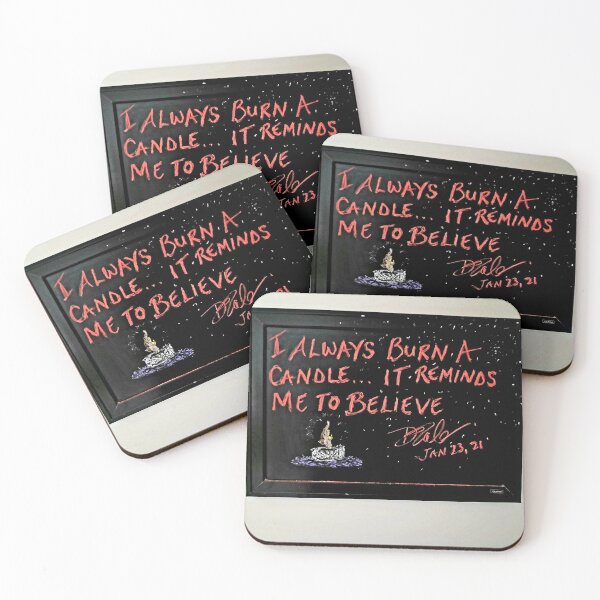 I ALWAYS BURN A
CANDLE... IT REMINDS
ME TO BELIEVE
JAN 23,
I ALWAYS BURN A
CANDLE... IT REMINDS
ME TO BELIEVE
JAN 23, 21
I ALWAYS BURN A
CANDLE... IT REMINDS
ME TO BELIEVE
JAN 23, 21
I ALWAYS BURN A
CANDLE... IT REMINDS
ME TO BELIEVE
JAN 23, 21